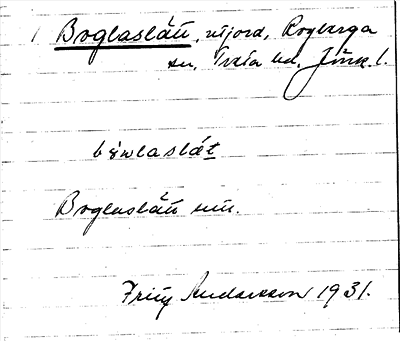 1 Boglaslätt, utjord, Rogberga
sn, Tveta hd. Jönk. l.
bɯwlaslát
Boglaslätt um.
Fritz Andersson 1931.